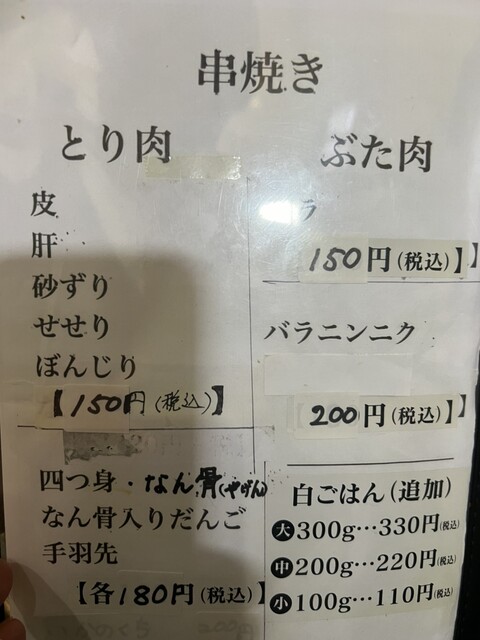 串焼き
とり肉
皮
肝
砂ずり
せせり
ぼんじり
【150円(税込)】
四つ身・なん骨(やげん)
なん骨入りだんご
手羽先
【各180円(税込)】
ぶた肉
ラ
150円(税込)】】
バラニンニク
200円(税込)】】
白ごはん(追加)
大300g…330円(税込)
中200g…220円(税込)
小100g…110円(税込)